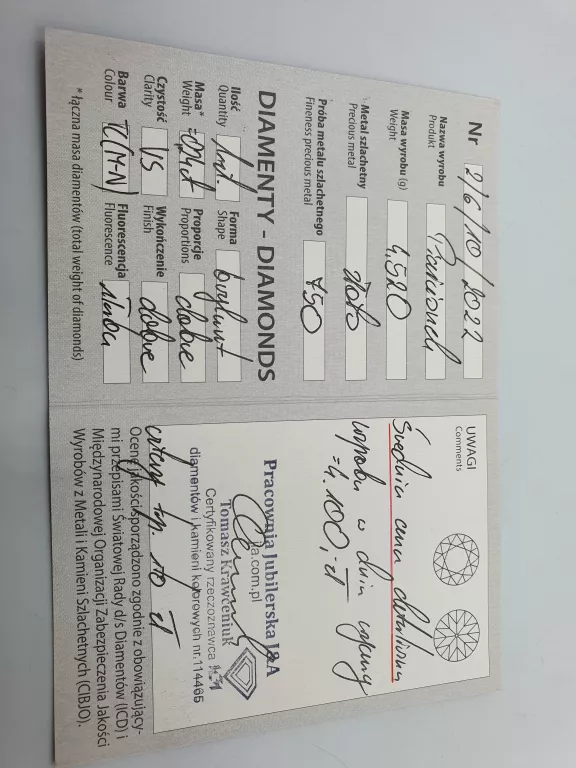 Nr 2/6/10/2022
Nazwa wyrobu Pierścionek
Produkt
Masa wyrobu (g) 4,520
Weight
Metal szlachetny złoto
Precious metal
Próba metalu szlachetnego 750
Fineness precious metal
DIAMENTY - DIAMONDS
Ilość 1szt. Forma brylant
Quantity Shape
Masa* Proporcje dobre
Weight Proportions
Czystość VS Wykończenie dobre
Clarity Finish
Barwa TC(M-N) Fluorescencja słaba
Colour Fluorescence
* łączna masa diamentów (total weight of diamonds)
UWAGI
Comments
Średnia cena detaliczna
wyrobu w dniu wyceny
=4.100,- zł
Pracownia Jubilerska J&A
ja.com.pl
Tomasz Krawczeniuk
Certyfikowany rzeczoznawca
diamentów i kamieni kolorowych nr.114466
zł
Ocenę jakości sporządzono zgodnie z obowiązujący-
mi przepisami Światowej Rady d/s Diamentów (ICD) i
Międzynarodowej Organizacji Zabezpieczenia Jakości
Wyrobów z Metali i Kamieni Szlachetnych (CIBJO).